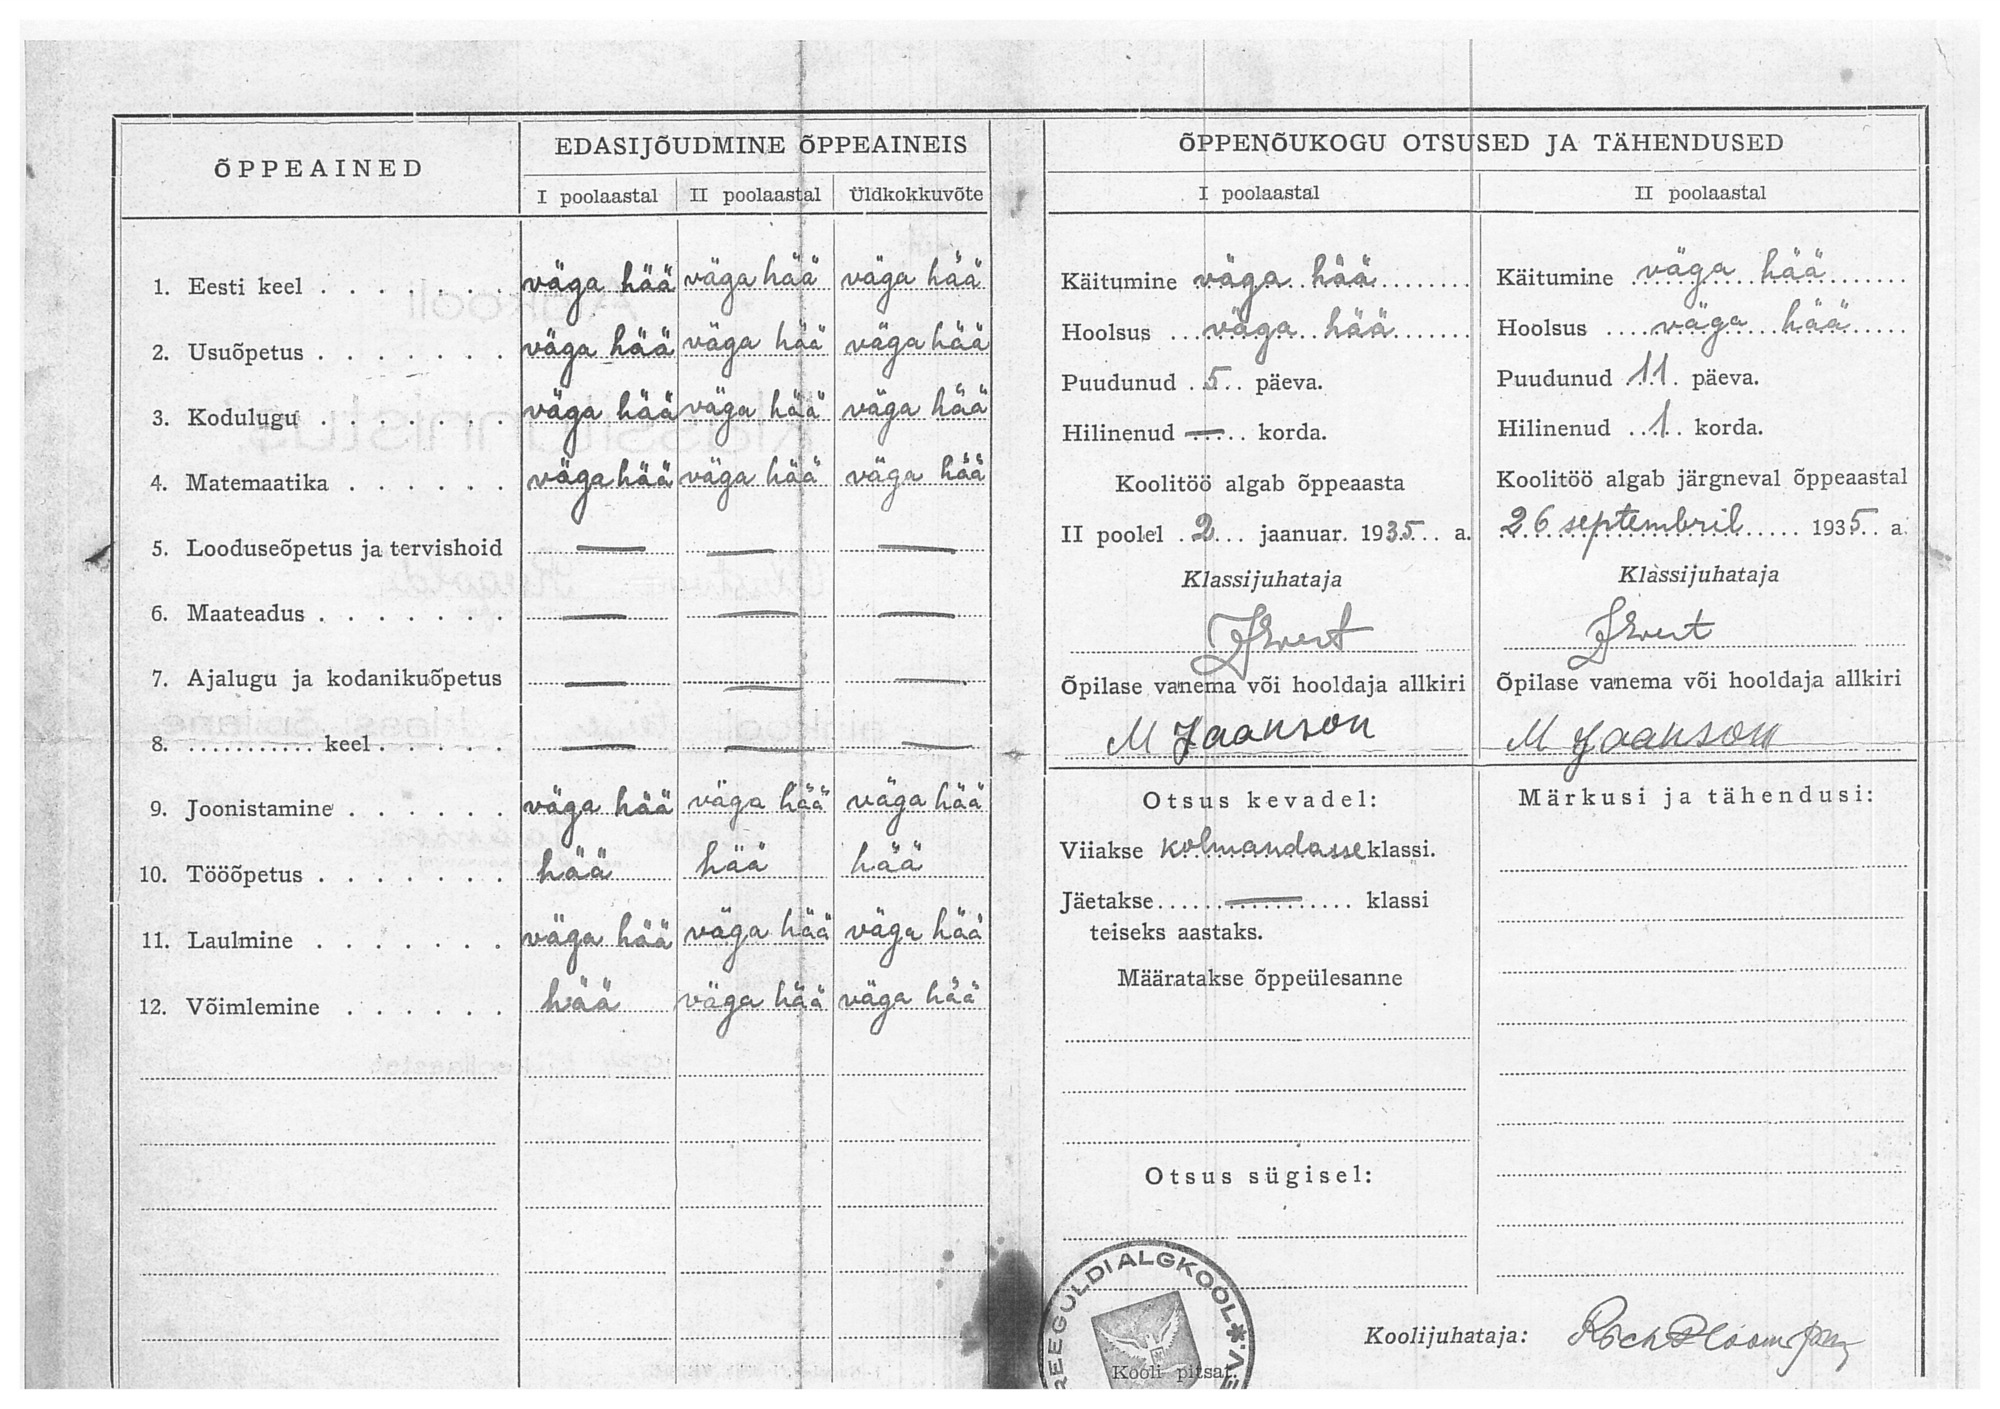 ÕPPEAINED
EDASIJÕUDMINE ÕPPEAINEIS
I poolaastal II poolaastal Üldkokkuvõte
1. Eesti keel . . . . . . . väga hää väga hää väga hää
2. Usuõpetus . . . . . . . väga hää väga hää väga hää
3. Kodulugu . . . . . . . väga hää väga hää väga hää
4. Matemaatika . . . . . . väga hää väga hää väga hää
5. Looduseõpetus ja tervishoid — — —
6. Maateadus . . . . . . . — — —
7. Ajalugu ja kodanikuõpetus — — —
8. ........... keel . . . . . — — —
9. Joonistamine . . . . . . väga hää väga hää väga hää
10. Tööõpetus . . . . . . . hää hää hää
11. Laulmine . . . . . . . väga hää väga hää väga hää
12. Võimlemine . . . . . . hää väga hää väga hää
ÕPPENÕUKOGU OTSUSED JA TÄHENDUSED
I poolaastal
Käitumine väga hää
Hoolsus väga hää
Puudunud 5 päeva.
Hilinenud — korda.
Koolitöö algab õppeaasta
II poolel 2 jaanuar. 1935 a.
Klassijuhataja
Õpilase vanema või hooldaja allkiri
M Jaanson
II poolaastal
Käitumine väga hää
Hoolsus väga hää
Puudunud 11 päeva.
Hilinenud 1 korda.
Koolitöö algab järgneval õppeaastal
26 septembril 1935 a.
Klassijuhataja
Õpilase vanema või hooldaja allkiri
M Jaanson
Otsus kevadel:
Viiakse kolmandasse klassi.
Jäetakse — klassi
teiseks aastaks.
Määratakse õppeülesanne
Otsus sügisel:
Märkusi ja tähendusi:
REEGOLDI ALGKOOL * E.V.
Kooli pitsat.
Koolijuhataja: